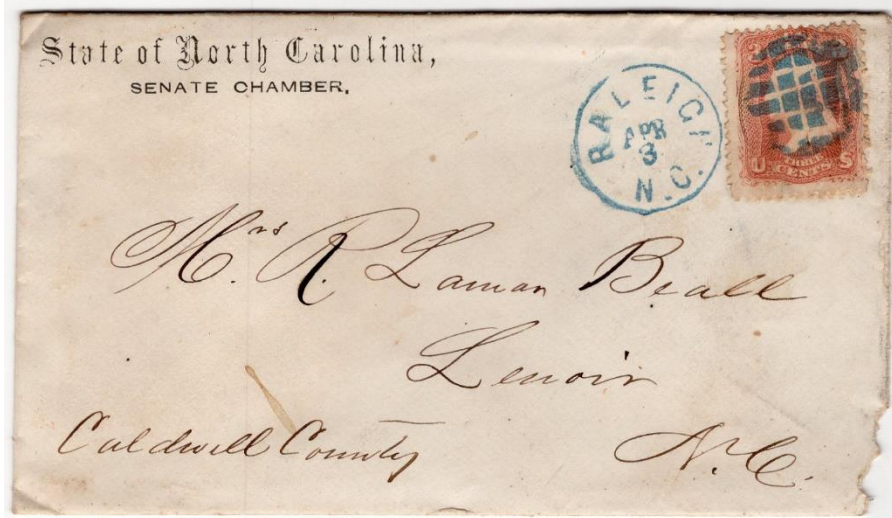 State of North Carolina,
SENATE CHAMBER,
RALEIGH
APR
3
N.C.
3
U THREE S
CENTS
Mrs. R. Lamar Beall
Lenoir
Caldwell County N.C.